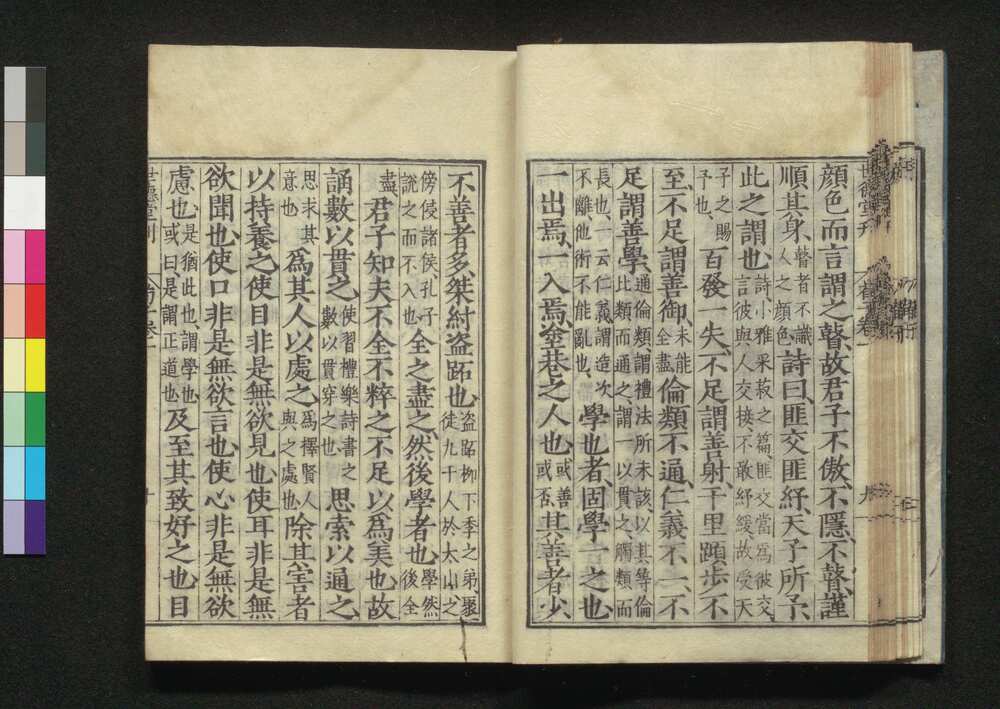 世德堂刊
荀卷一
九
顏色而言謂之瞽、故君子不傲、不隱、不瞽、謹
順其身、瞽者不識人之顏色 詩曰、匪交匪紓、天子所予、
此之謂也、詩小雅采菽之篇、匪交當爲彼交、言彼與人交接、不敢紓緩、故受天
子之賜予也、百發一失、不足謂善射、千里蹞步不
至、不足謂善御、未能全盡 倫類不通、仁義不一、不
足謂善學、通倫類謂禮法所未該、以其等倫比類而通之、謂一以貫之、觸類而
長也、一云仁義謂造次不離他術不能亂也、學也者、固學一之也、
一出焉、一入焉、塗巷之人也、或善或否、其善者少、
不善者多、桀紂盜跖也、盜跖柳下季之弟、聚徒九千人於太山之
傍、侵諸侯、孔子說之而不入也 全之盡之、然後學者也、學然後全
盡、君子知夫不全不粹之不足以爲美也、故
誦數以貫之、使習禮樂詩書之數以貫穿之也 思索以通之、
思求其意也 爲其人以處之、爲擇賢人與之處也 除其害者
以持養之、使目非是無欲見也、使耳非是無
欲聞也、使口非是無欲言也、使心非是無欲
慮也、是猶此也、謂學也或曰、是謂正道也 及至其致好之也、目
世德堂刊
十